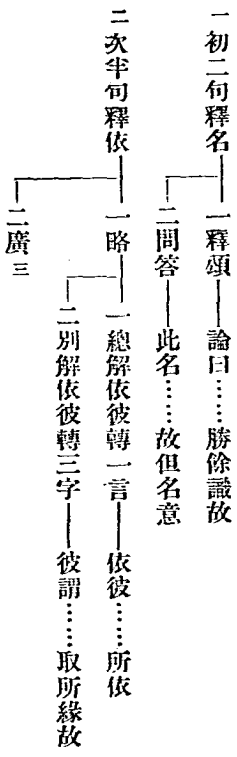 一初二句釋名 一釋頌 論曰……勝餘識故
二問答 此名……故但名意
二次半句釋依 一略 一總解依彼轉一言 依彼……所依
二別解依彼轉三字 彼謂……取所緣故
二廣三